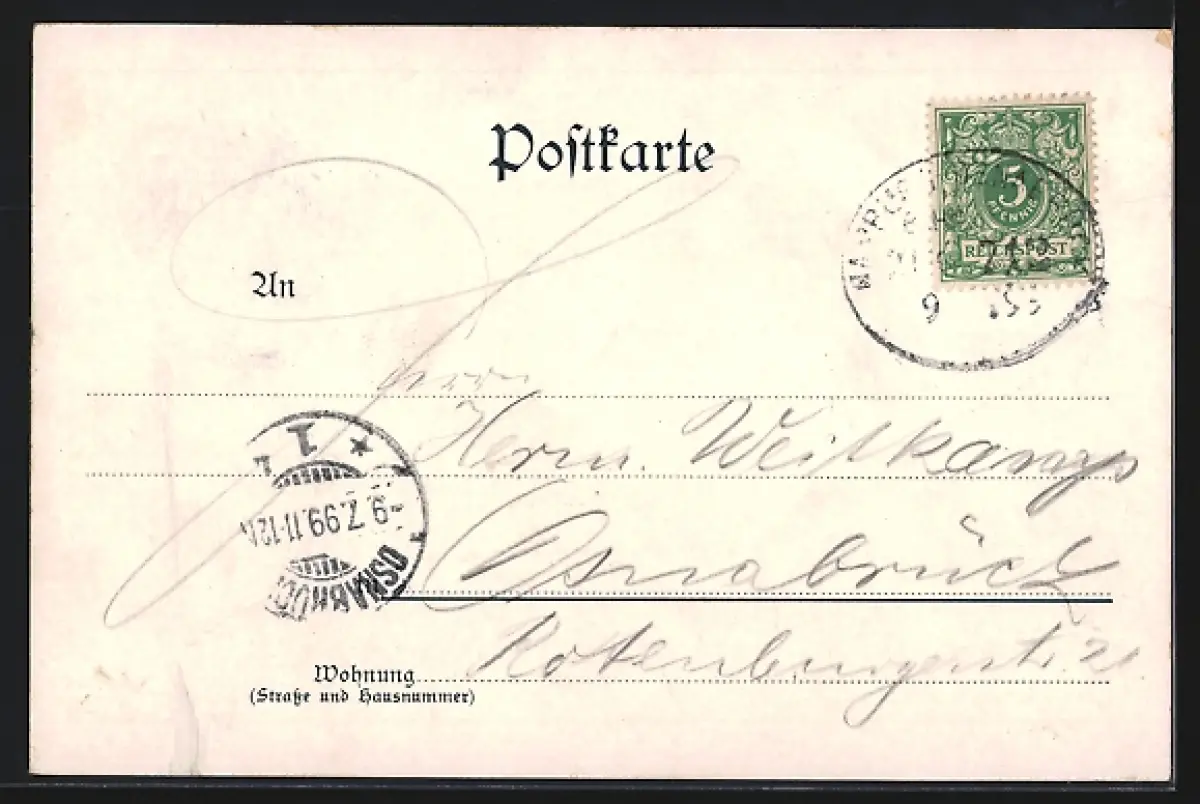 Postkarte
5
PFENNIG
REICHSPOST
An
Herrn
Herrn. Weitkamp
Osnabrück
Rotenburgerstr. 21
1
-9.7.99.11-12
OSNABRÜCK
Wohnung
(Straße und Hausnummer)